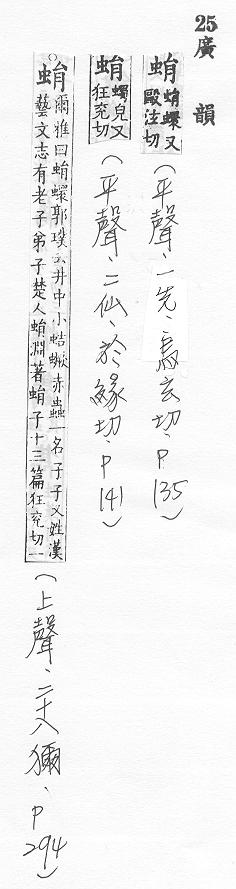 25廣韻
蜎 蜎蠉又
毆泫切
(平聲、一先、烏玄切、P135)
蜎 蠋皃又
狂兖切
(平聲、二仙、於緣切、P141)
○蜎 爾雅曰蜎蠉郭璞云井中小蛣蟩赤蟲一名孑孓又姓漢
藝文志有老子弟子楚人蜎淵著蜎子十三篇狂兖切一
(上聲、二十八獮、P294)